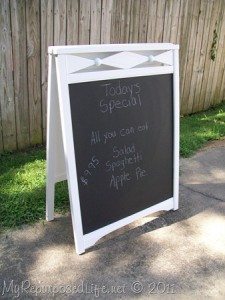 Today's
Special
All you can eat
Salad
Spaghetti
Apple Pie
$9.25
MyRepurposedLife.net © 2011